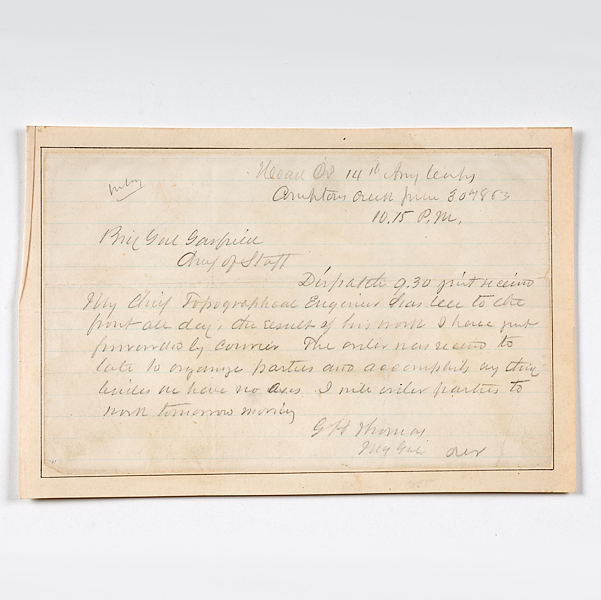 Head Qs 14th Army Corps
Cromptons Creek June 30th 1863
10.15 P.M.
Brig Genl Garfield
Chief of Staff
Dispatch 9.30 just received
My Chief Topographical Engineer has been to the
front all day, the result of his work I have just
forwarded by courier The order was received to
late to organize parties and accomplish any thing
besides we have no axes I will order parties to
work tomorrow morning
G H Thomas
Maj Genl